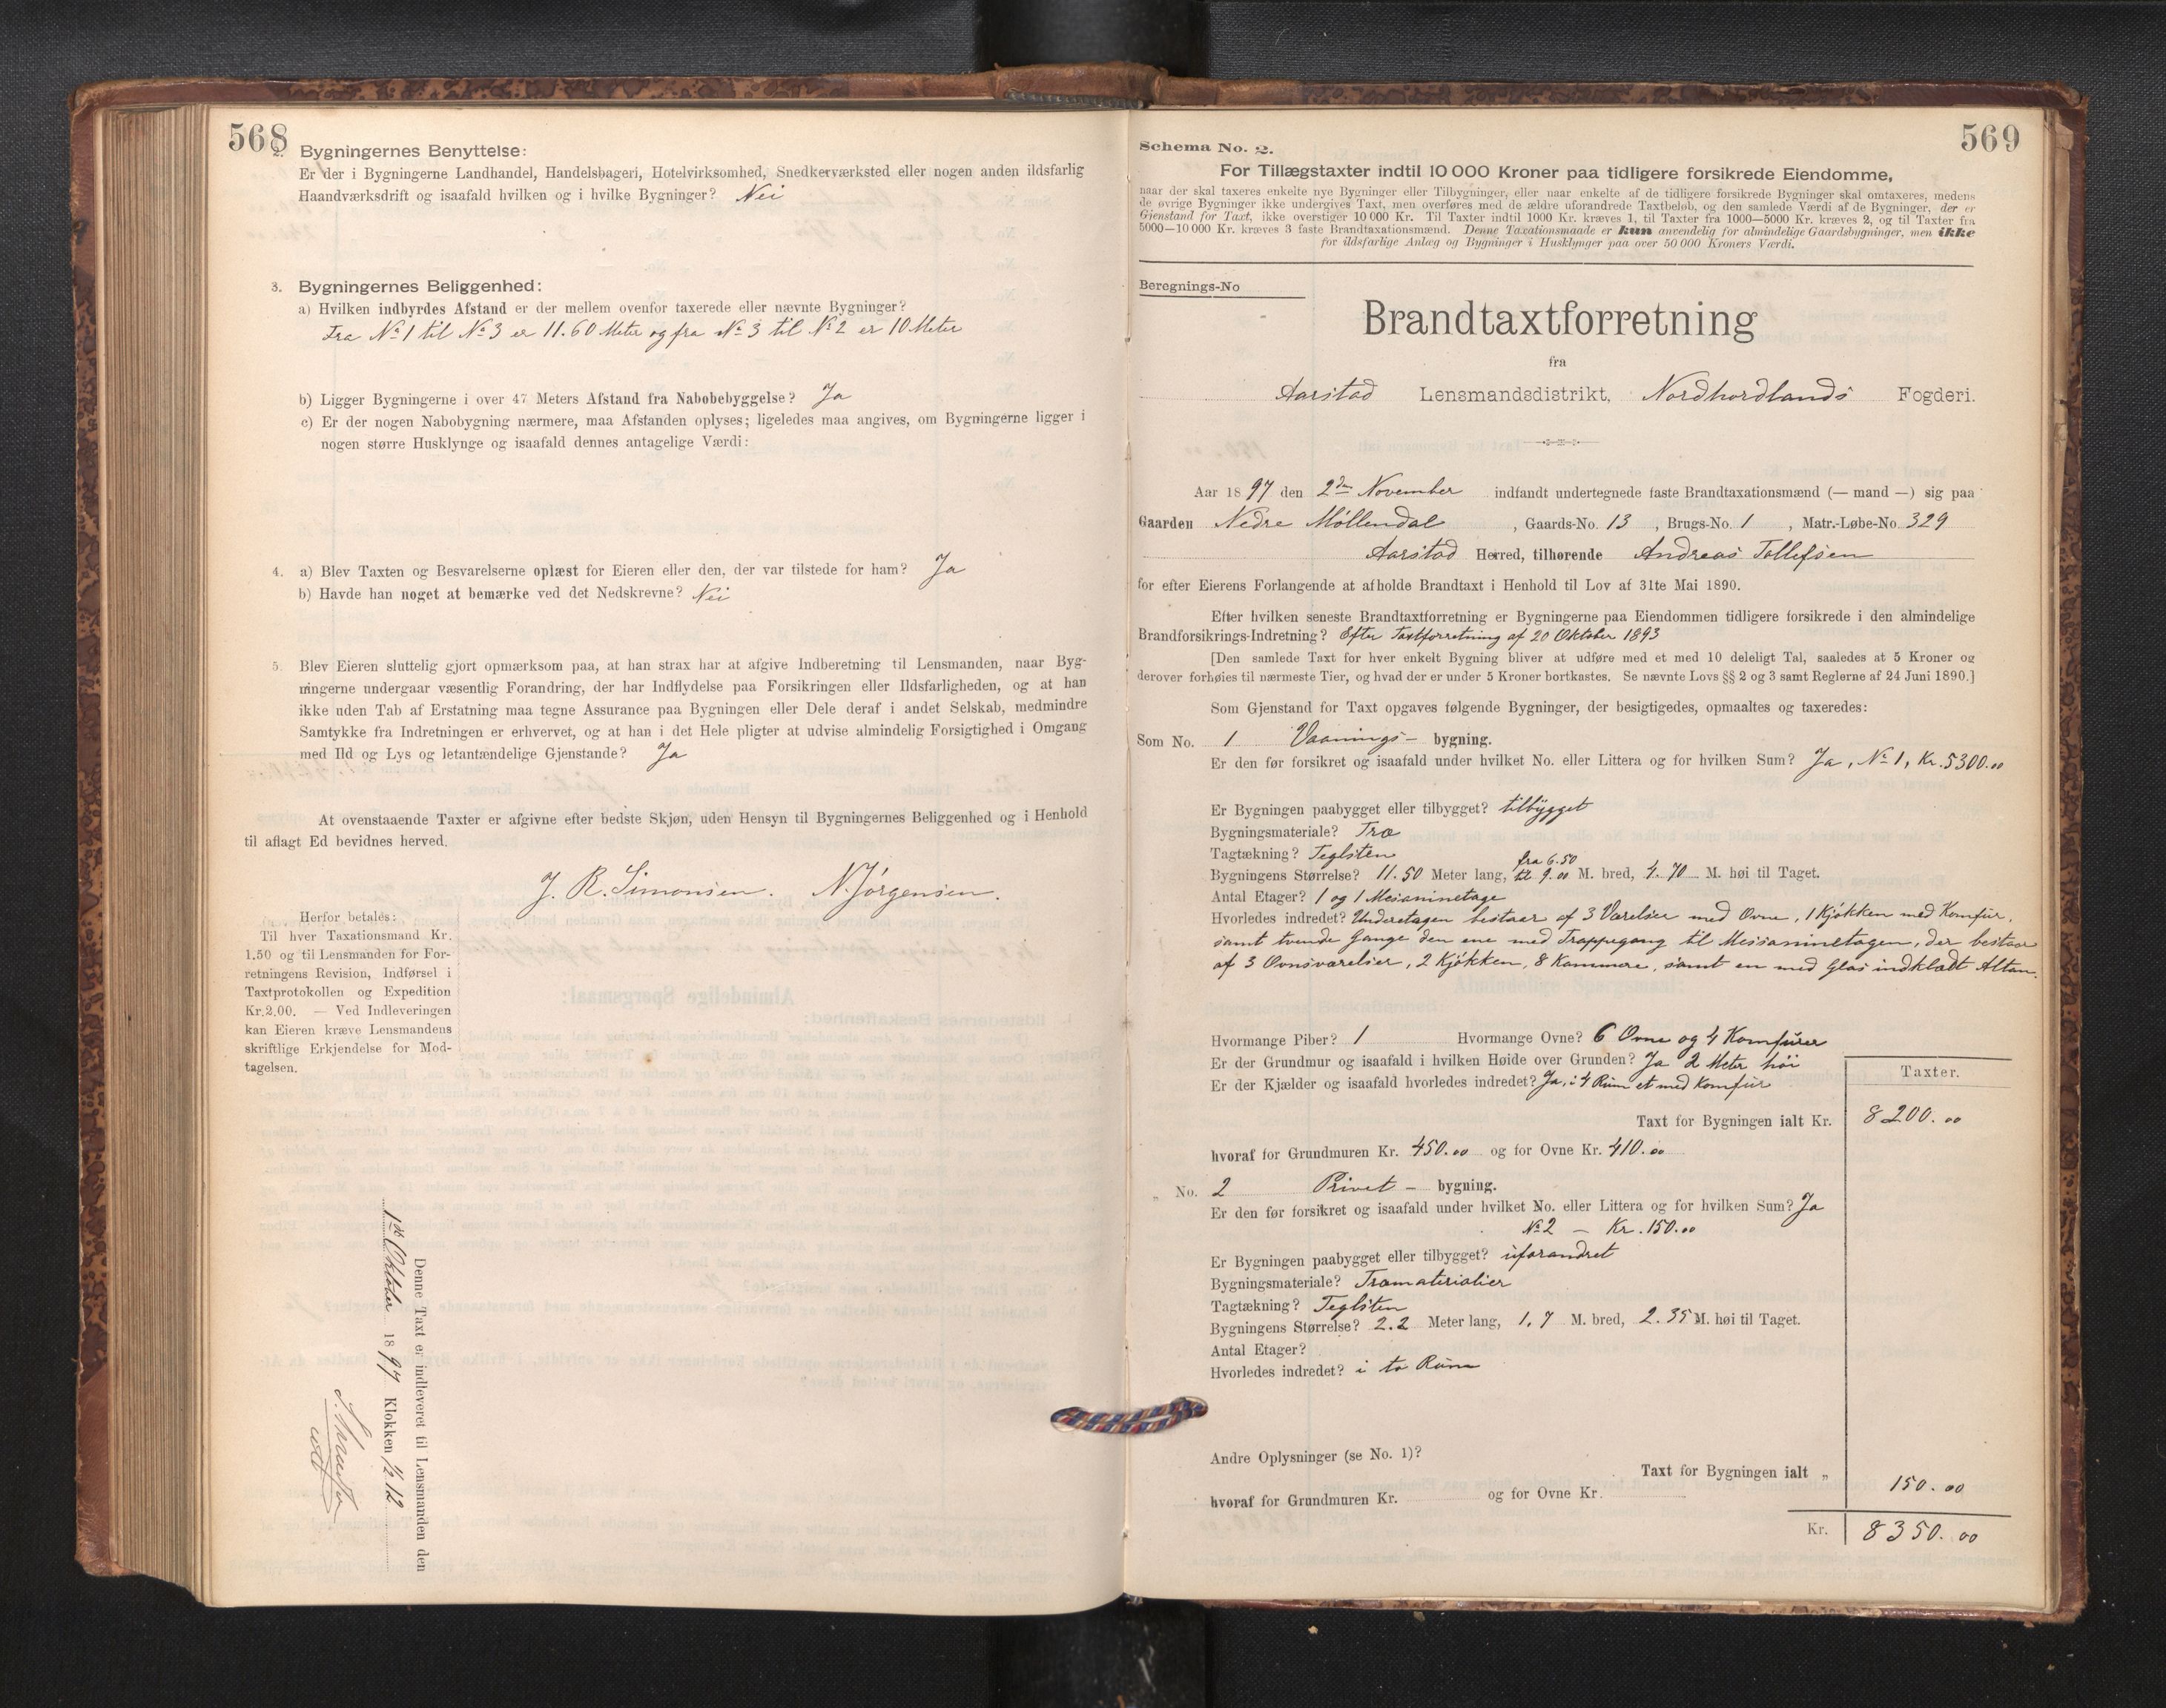 568
2. Bygningernes Benyttelse:
Er der i Bygningerne Landhandel, Handelsbageri, Hotelvirksomhed, Snedkerværksted eller nogen anden ildsfarlig
Haandværksdrift og isaafald hvilken og i hvilke Bygninger? Nei
3. Bygningernes Beliggenhed:
a) Hvilken indbyrdes Afstand er der mellem ovenfor taxerede eller nævnte Bygninger?
Fra No 1 til No 3 er 11.60 Meter og fra No 3 til No 2 er 10 Meter
b) Ligger Bygningerne i over 47 Meters Afstand fra Nabobebyggelse? Ja
c) Er der nogen Nabobygning nærmere, maa Afstanden oplyses; ligeledes maa angives, om Bygningerne ligger i
nogen større Husklynge og isaafald dennes antagelige Værdi:
4. a) Blev Taxten og Besvarelserne oplæst for Eieren eller den, der var tilstede for ham? Ja
b) Havde han noget at bemærke ved det Nedskrevne? Nei
5. Blev Eieren sluttelig gjort opmærksom paa, at han strax har at afgive Indberetning til Lensmanden, naar Byg-
ningerne undergaar væsentlig Forandring, der har Indflydelse paa Forsikringen eller Ildsfarligheden, og at han
ikke uden Tab af Erstatning maa tegne Assurance paa Bygningen eller Dele deraf i andet Selskab, medmindre
Samtykke fra Indretningen er erhvervet, og at han i det Hele pligter at udvise almindelig Forsigtighed i Omgang
med Ild og Lys og letantændelige Gjenstande? Ja
At ovenstaaende Taxter er afgivne efter bedste Skjøn, uden Hensyn til Bygningernes Beliggenhed og i Henhold
til aflagt Ed bevidnes herved.
J. R. Simonsen. N. Jørgensen.
Herfor betales:
Til hver Taxationsmand Kr.
1.50 og til Lensmanden for For-
retningens Revision, Indførsel i
Taxtprotokollen og Expedition
Kr. 2.00. — Ved Indleveringen
kan Eieren kræve Lensmandens
skriftlige Erkjendelse for Mod-
tagelsen.
Denne Taxt er indleveret til Lensmanden den
1ste Oktober 1897 Klokken 1/2 12
569
Schema No. 2.
For Tillægstaxter indtil 10 000 Kroner paa tidligere forsikrede Eiendomme,
naar der skal taxeres enkelte nye Bygninger eller Tilbygninger, eller naar enkelte af de tidligere forsikrede Bygninger skal omtaxeres, medens
de øvrige Bygninger ikke undergives Taxt, men overføres med de ældre uforandrede Taxtbeløb, og den samlede Værdi af de Bygninger, der er
Gjenstand for Taxt, ikke overstiger 10 000 Kr. Til Taxter indtil 1000 Kr. kræves 1, til Taxter fra 1000—5000 Kr. kræves 2, og til Taxter fra
5000—10 000 Kr. kræves 3 faste Brandtaxationsmænd. Denne Taxationsmaade er kun anvendelig for almindelige Gaardsbygninger, men ikke
for ildsfarlige Anlæg og Bygninger i Husklynger paa over 50 000 Kroners Værdi.
Beregnings-No
Brandtaxtforretning
fra
Aarstad Lensmandsdistrikt, Nordhordlands Fogderi.
Aar 1897 den 2den November indfandt undertegnede faste Brandtaxationsmænd (— mand —) sig paa
Gaarden Nedre Møllendal, Gaards-No. 13, Brugs-No. 1, Matr.-Løbe-No. 329
Aarstad Herred, tilhørende Andreas Tollefsen
for efter Eierens Forlangende at afholde Brandtaxt i Henhold til Lov af 31te Mai 1890.
Efter hvilken seneste Brandtaxtforretning er Bygningerne paa Eiendommen tidligere forsikrede i den almindelige
Brandforsikrings-Indretning? Efter Taxtforretning af 20 Oktober 1893
[Den samlede Taxt for hver enkelt Bygning bliver at udføre med et med 10 deleligt Tal, saaledes at 5 Kroner og
derover forhøies til nærmeste Tier, og hvad der er under 5 Kroner bortkastes. Se nævnte Lovs §§ 2 og 3 samt Reglerne af 24 Juni 1890.]
Som Gjenstand for Taxt opgaves følgende Bygninger, der besigtigedes, opmaaltes og taxeredes:
Som No. 1 Vaanings- bygning.
Er den før forsikret og isaafald under hvilket No. eller Littera og for hvilken Sum? Ja, No 1, Kr. 5300.00
Er Bygningen paabygget eller tilbygget? tilbygget
Bygningsmateriale? Træ
Tagtækning? Teglsten
fra 6.50
Bygningens Størrelse? 11.50 Meter lang, til 9.00 M. bred, 4.70 M. høi til Taget.
Antal Etager? 1 og 1 Mesaninetage
Hvorledes indredet? Underetagen bestaar af 3 Værelser med Ovne, 1 Kjøkken med Komfur,
samt tvende Gange den ene med Trappegang til Messaninetagen, der bestaar
af 3 Ovnsværelser, 2 Kjøkken, 8 Kammere, samt en med Glas indklædt Altan.
Hvormange Piber? 1 Hvormange Ovne? 6 Ovne og 4 Komfurer
Er der Grundmur og isaafald i hvilken Høide over Grunden? Ja 2 Meter høi
Er der Kjælder og isaafald hvorledes indredet? Ja, i 4 Rum et med Komfur
Taxter.
Taxt for Bygningen ialt Kr. 8200.00
hvoraf for Grundmuren Kr. 450.00 og for Ovne Kr. 410.00
„ No. 2 Privet - bygning.
Er den før forsikret og isaafald under hvilket No. eller Littera og for hvilken Sum? Ja
No 2 — Kr. 150.00
Er Bygningen paabygget eller tilbygget? uforandret
Bygningsmateriale? Træmaterialier
Tagtækning? Teglsten
Bygningens Størrelse? 2.2 Meter lang, 1.7 M. bred, 2.35 M. høi til Taget.
Antal Etager?
Hvorledes indredet? i to Rum
Andre Oplysninger (se No. 1)?
Taxt for Bygningen ialt „ 150.00
hvoraf for Grundmuren Kr. og for Ovne Kr.
Kr. 8350.00